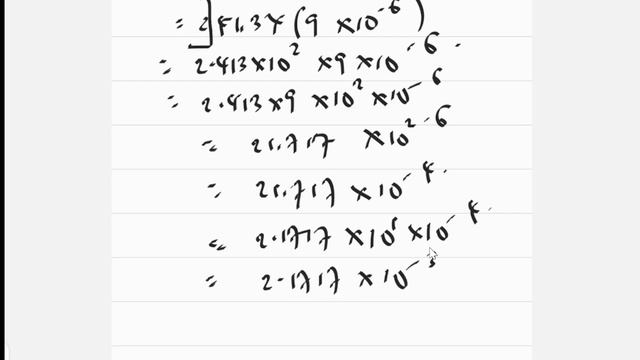 = 241.34 (9 ×10^-6)
= 2.413×10^2 ×9 ×10^-6.
= 2.413×9 ×10^2 ×10^-6
= 21.717 ×10^2-6
= 21.717 ×10^-4.
= 2.1717 ×10^1 ×10^-4.
= 2.1717 ×10^-3